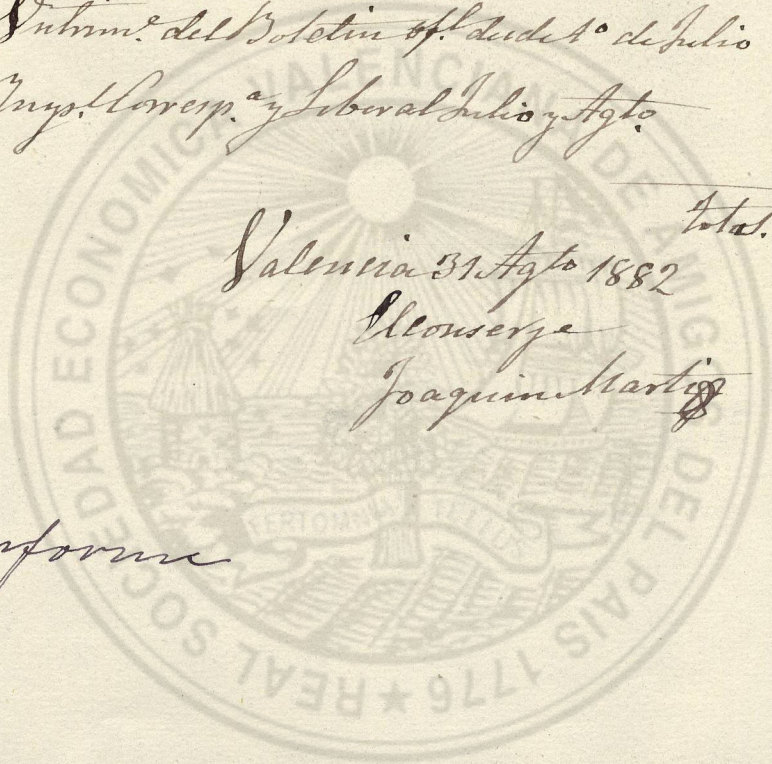 del Boletin ofl. desde 1º de Julio
Corresp.ª y Liberal Julio y Agto.
total.
Valencia 31 Agto 1882
El conserge
Joaquin Marti
nforme
REAL SOCIEDAD ECONOMICA VALENCIANA DE AMIGOS DEL PAIS 1776
FERT OMNIA